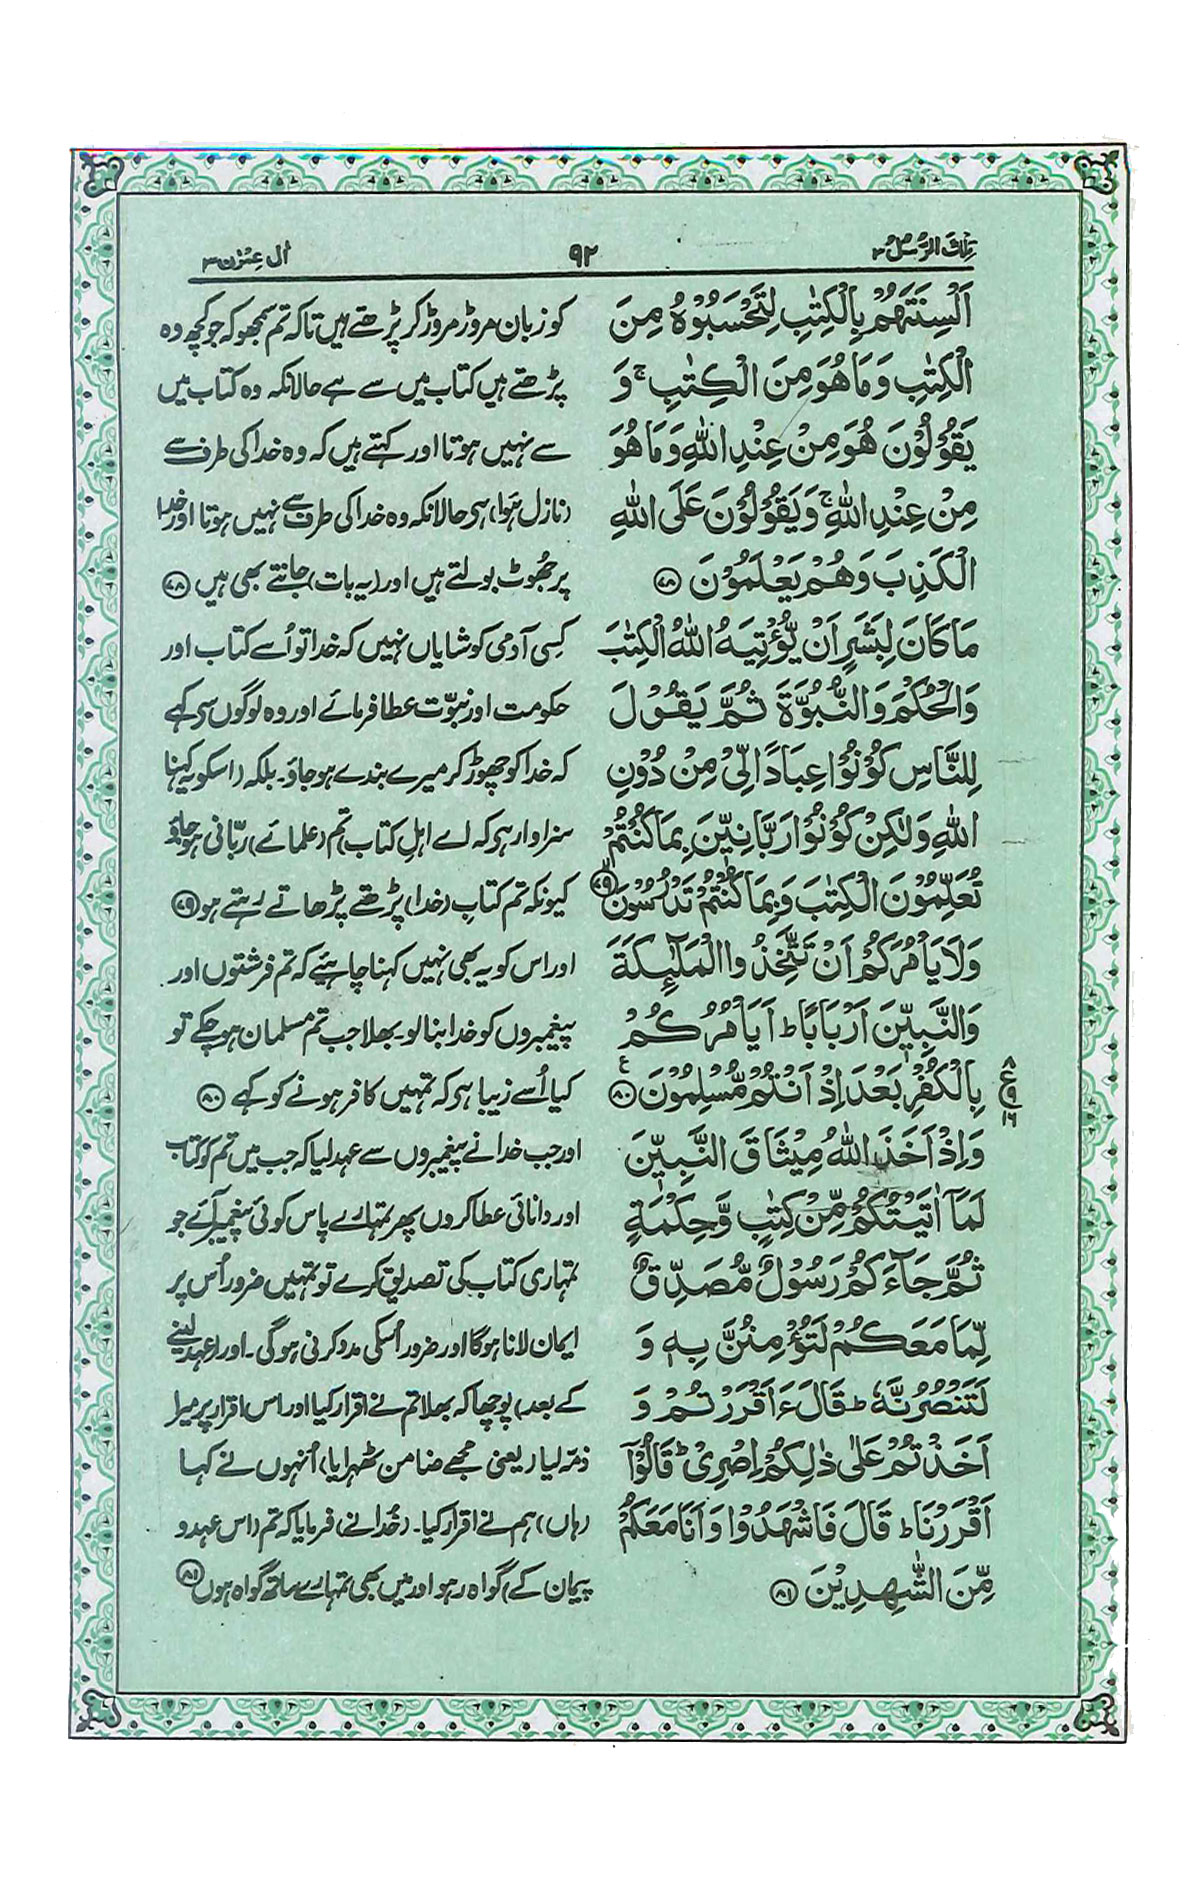 تِلْكَ الرُّسُلُ ۳
۹۲
اٰل عِمْرٰن ۳
اَلْسِنَتَهُمْ بِالْكِتٰبِ لِتَحْسَبُوْهُ مِنَ
الْكِتٰبِ وَمَا هُوَ مِنَ الْكِتٰبِ ۚ وَ
يَقُوْلُوْنَ هُوَ مِنْ عِنْدِ اللّٰهِ وَمَا هُوَ
مِنْ عِنْدِ اللّٰهِ ۚ وَيَقُوْلُوْنَ عَلَى اللّٰهِ
الْكَذِبَ وَهُمْ يَعْلَمُوْنَ ۷۸
مَا كَانَ لِبَشَرٍ اَنْ يُّؤْتِيَهُ اللّٰهُ الْكِتٰبَ
وَالْحُكْمَ وَالنُّبُوَّةَ ثُمَّ يَقُوْلَ
لِلنَّاسِ كُوْنُوْا عِبَادًا لِّيْ مِنْ دُوْنِ
اللّٰهِ وَلٰكِنْ كُوْنُوْا رَبَّانِيّٖنَ بِمَا كُنْتُمْ
تُعَلِّمُوْنَ الْكِتٰبَ وَبِمَا كُنْتُمْ تَدْرُسُوْنَ ۷۹
وَلَا يَأْمُرَكُمْ اَنْ تَتَّخِذُوا الْمَلٰٓئِكَةَ
وَالنَّبِيّٖنَ اَرْبَابًا ؕ اَيَأْمُرُكُمْ
بِالْكُفْرِ بَعْدَ اِذْ اَنْتُمْ مُّسْلِمُوْنَ ۸۰ ع
وَاِذْ اَخَذَ اللّٰهُ مِيْثَاقَ النَّبِيّٖنَ
لَمَاۤ اٰتَيْتُكُمْ مِّنْ كِتٰبٍ وَّحِكْمَةٍ
ثُمَّ جَآءَكُمْ رَسُوْلٌ مُّصَدِّقٌ
لِّمَا مَعَكُمْ لَتُؤْمِنُنَّ بِهٖ وَ
لَتَنْصُرُنَّهٗ ؕ قَالَ ءَاَقْرَرْتُمْ وَ
اَخَذْتُمْ عَلٰى ذٰلِكُمْ اِصْرِيْ ؕ قَالُوْۤا
اَقْرَرْنَا ؕ قَالَ فَاشْهَدُوْا وَاَنَا مَعَكُمْ
مِّنَ الشّٰهِدِيْنَ ۸۱
۸
ع ۹
۱۶
کو زبان مروڑ مروڑ کر پڑھتے ہیں تاکہ تم سمجھو کہ جو کچھ وہ
پڑھتے ہیں کتاب میں سے ہے حالانکہ وہ کتاب میں
سے نہیں ہوتا اور کہتے ہیں کہ وہ خدا کی طرف سے
(نازل ہوا) ہی حالانکہ وہ خدا کی طرف سے نہیں ہوتا اور خدا
پر جھوٹ بولتے ہیں اور (یہ بات) جانتے بھی ہیں ۷۸
کسی آدمی کو شایاں نہیں کہ خدا تو اُسے کتاب اور
حکومت اور نبوّت عطا فرمائے اور وہ لوگوں سی کہے
کہ خدا کو چھوڑ کر میرے بندے ہو جاؤ۔ بلکہ (اسکو یہ کہنا
سزاوار ہی کہ اے اہلِ کتاب) تم (علمائے) ربّانی ہو جاؤ
کیونکہ تم کتابِ (خدا) پڑھتے پڑھاتے رہتے ہو ۷۹
اور اس کو یہ بھی نہیں کہنا چاہئے کہ تم فرشتوں اور
پیغمبروں کو خدا بنا لو۔ بھلا جب تم مسلمان ہو چکے تو
کیا اُسے زیبا ہی کہ تمہیں کافر ہونے کو کہے ۸۰
اور جب خدا نے پیغمبروں سے عہد لیا کہ جب میں تم کو کتاب
اور دانائی عطا کروں پھر تمہارے پاس کوئی پیغمبر آئے جو
تمہاری کتاب کی تصدیق کرے تو تمہیں ضرور اُس پر
ایمان لانا ہوگا اور ضرور اُسکی مدد کرنی ہوگی۔ اور (عہد لینے
کے بعد) پوچھا کہ بھلا تم نے اقرار کیا اور اس اقرار پر میرا
ذمّہ لیا (یعنی مجھے ضامن ٹھہرایا) اُنہوں نے کہا
(ہاں) ہم نے اقرار کیا۔ (خدا نے) فرمایا کہ تم (اس عہد و
پیمان کے) گواہ رہو اور میں بھی تمہارے ساتھ گواہ ہوں ۸۱